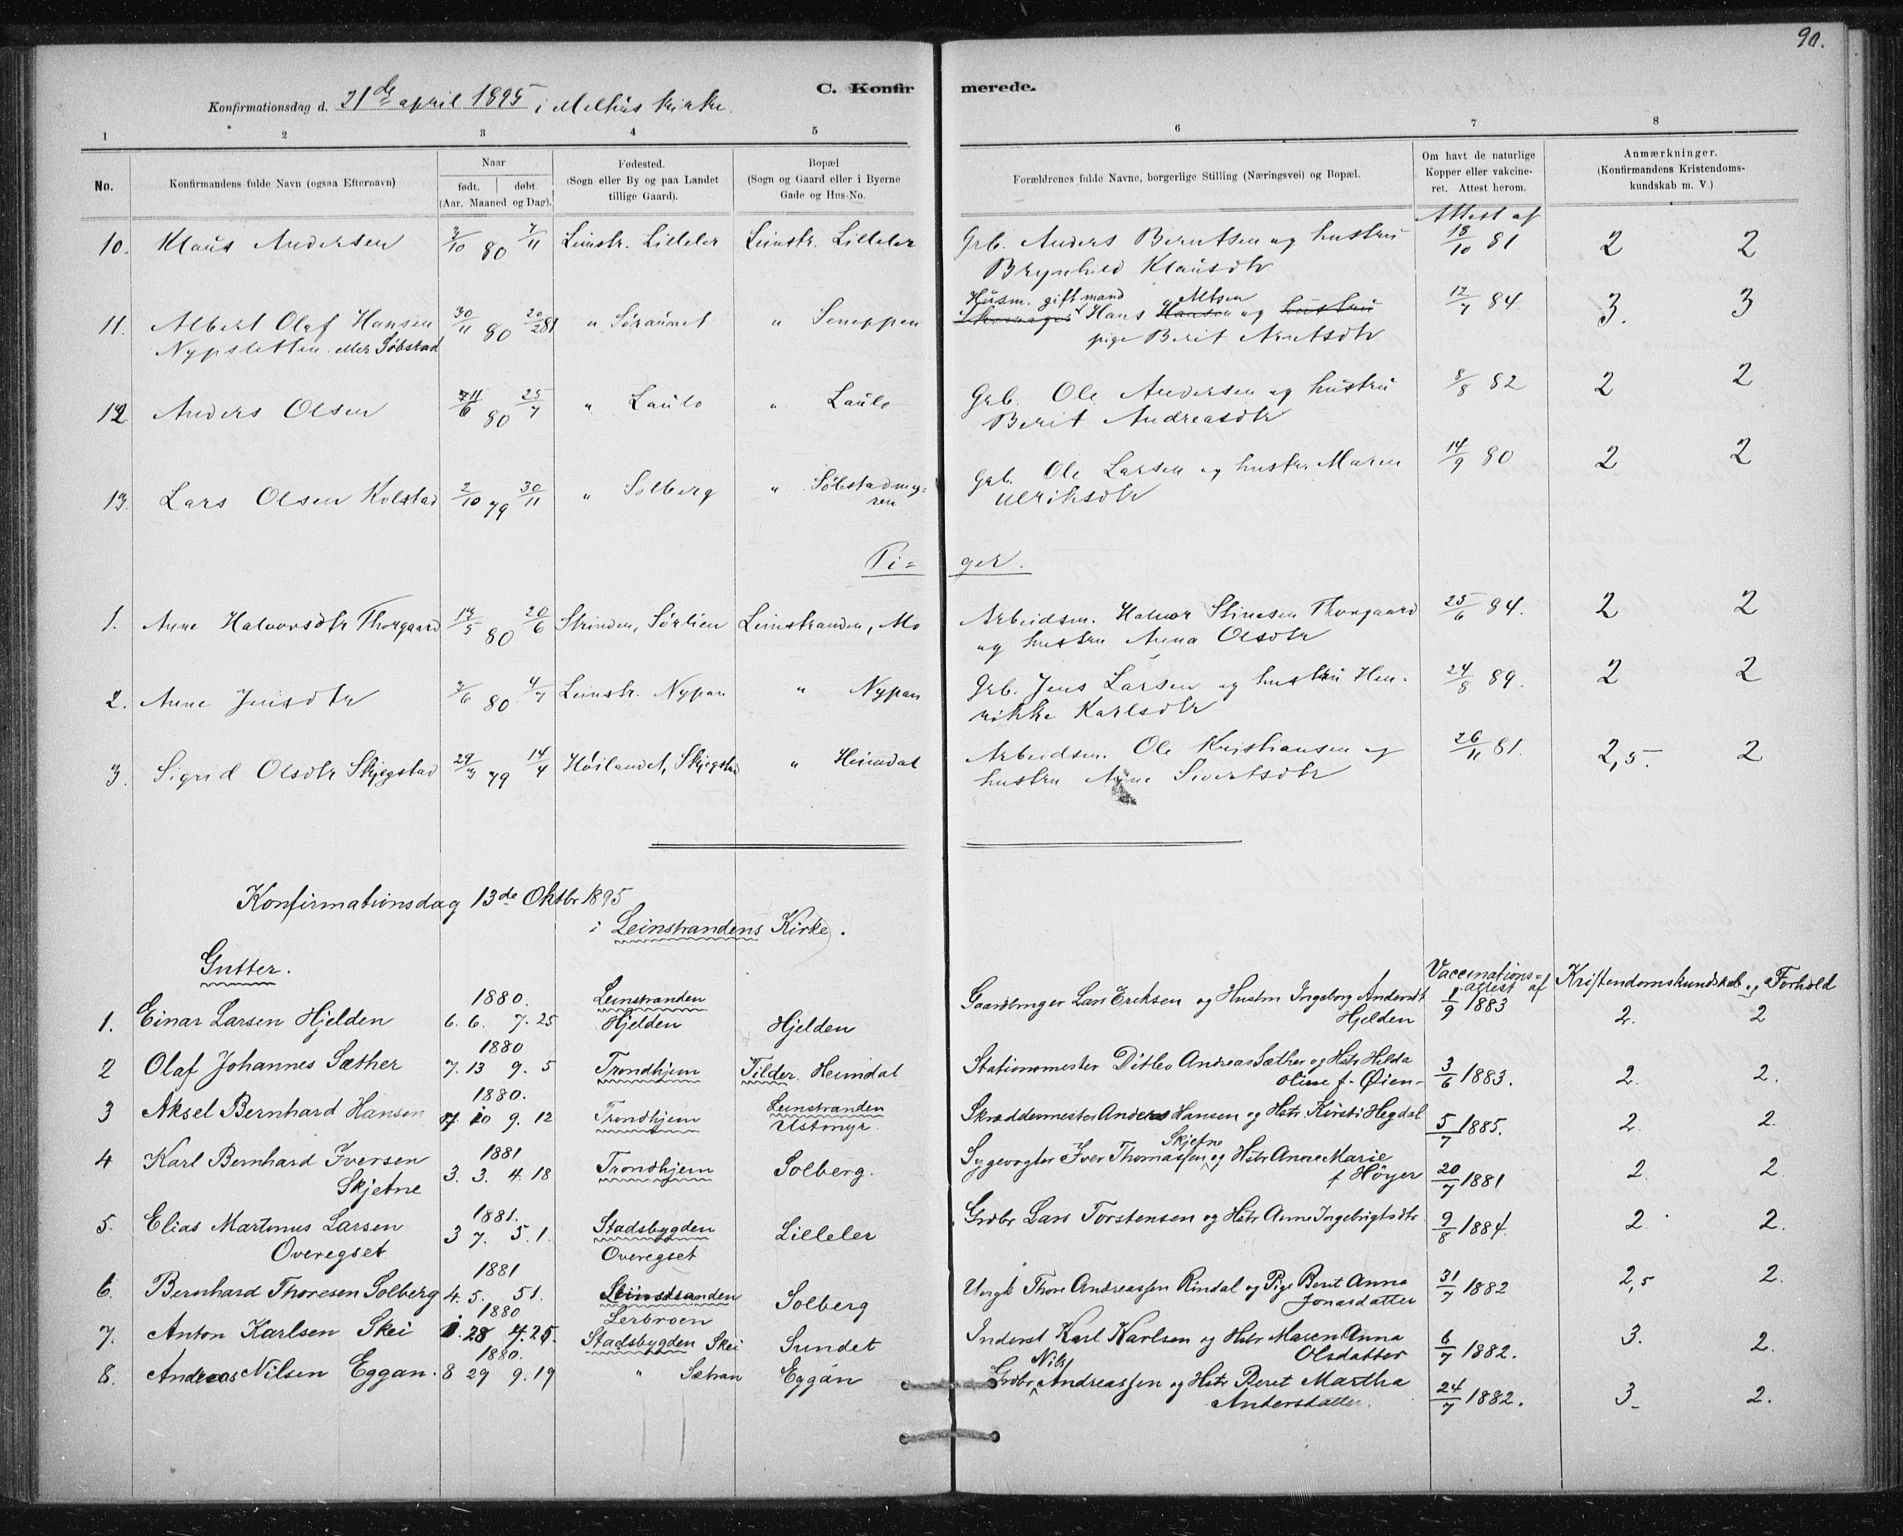 90.
C. Konfirmerede.
Konfirmationsdag d. 21de april 1895 i Melhus kirke.
1 2 3 4 5 6 7 8
No. Konfirmandens fulde Navn (ogsaa Efternavn) Naar født. døbt. (Aar. Maaned og Dag). Fødested. (Sogn eller By og paa Landet tillige Gaard). Bopæl (Sogn og Gaard eller i Byerne Gade og Hus-No. Forældrenes fulde Navne, borgerlige Stilling (Næringsvei) og Bopæl. Om havt de naturlige Kopper eller vakcineret. Attest herom. Anmærkninger. (Konfirmandens Kristendomskundskab m. V.)
Attest af
10. Klaus Andersen 3/10 80 7/11 Leinstr. Lilleler Leinstr. Lilleler Grb. Anders Berntsen og hustru 18/10 81 2 2
Brynhild Klausdtr
Husm. gift mand Altsen
11. Albert Olaf Hansen 30/11 80 20/2 81 " Søraunet " Sneppen Hans Hansen og hustru 12/7 84. 3. 3
Nypsletten eller Søbstad pige Berit Arntsdtr
12. Anders Olsen 11/6 80 25/7 " Laulo " Laulo Grb. Ole Andersen og hustru 8/8 82 2 2
Berit Andreasdtr
13. Lars Olsen Kolstad 2/10 79 30/11 " Solberg " Søbstadmy= Grb. Ole Larsen og hustru Maren 14/9 80 2 2
ren Ulriksdtr
Pi= ger.
1. Anne Halvorsdtr Thorgaard 14/5 80 20/6 Strinden, Sørlien Leinstranden, Mo Arbeidsm. Halvor Stinesen Thorgaard 25/6 84. 2 2
og hustru Anna Olsdtr
2. Anne Jensdtr 3/6 80. 4/7 Leinstr. Nypan " Nypan Grb. Jens Larsen og hustru Hen- 24/8 89. 2 2
rikke Karlsdtr
3. Sigrid Olsdtr Skjegstad 29/3 79 14/4 Høilandet, Skjegstad " Heimdal Arbeidsm. Ole Kristiansen og 26/11 81. 2,5. 2
hustru Anne Sivertsdtr
Konfirmationsdag 13de Oktbr 1895
i Leinstrandens Kirke.
Gutter. Vaccinations= attest af Kristendomskundskab og Forhold
1880. Leinstranden
1. Einar Larsen Hjelden 6. 6. 7. 25 Hjelden Hjelden Gaardbruger Lars Eriksen og Hustru Ingeborg Andersdt 1/9 1883 2. 2
Hjelden
1880
2 Olaf Johannes Sæther 7. 13 9. 5 Trondhjem Tilder. Heimdal Stationsmester Ditlev Andreas Sæther og Hstr Hilda 3/6 1883. 2. 2.
Oline f. Øien
1880. Leinstranden
3 Aksel Bernhard Hansen 7. 20 9. 12 Trondhjem Ustmyr. Skræddermester Anders Hansen og Hstr Kirsti Hegdal 5/7 1885. 2. 2.
1881 Skjetne
4 Karl Bernhard Iversen 3. 3. 4. 18 Trondhjem Solberg. Sygevogter Iver Thomassen og Hstr Anne Marie 20/7 1881 2. 2.
Skjetne f Höyer
1881.
5. Elias Martinus Larsen 3 7. 5. 1. Stadsbygden Lilleler Grdbr Lars Torstensen og Hstr Anne Ingebrigtsdtr 9/8 1884. 2. 2.
Overegset Overegset
1881
6. Bernhard Thoresen Solberg 4. 5. 5 1. Leinstranden Solberg Ungk Thore Andreassen Rindal og Pige Beret Anna 31/7 1882 2,5 2.
Lerbroen Jonasdatter
1880
7. Anton Karlsen Skei 1. 28 4. 25. Stadsbygden Skei Sundet Inderst Karl Karlsen og Hstr Maren Anna 6/7 1882. 3. 2.
Olsdatter
1880. Nils
8. Andreas Nilsen Eggan. 8 29 9. 19 " Sætran Eggan Grdbr Andreassen og Hstr Beret Martha 24/7 1882. 3. 2.
Andersdatter.